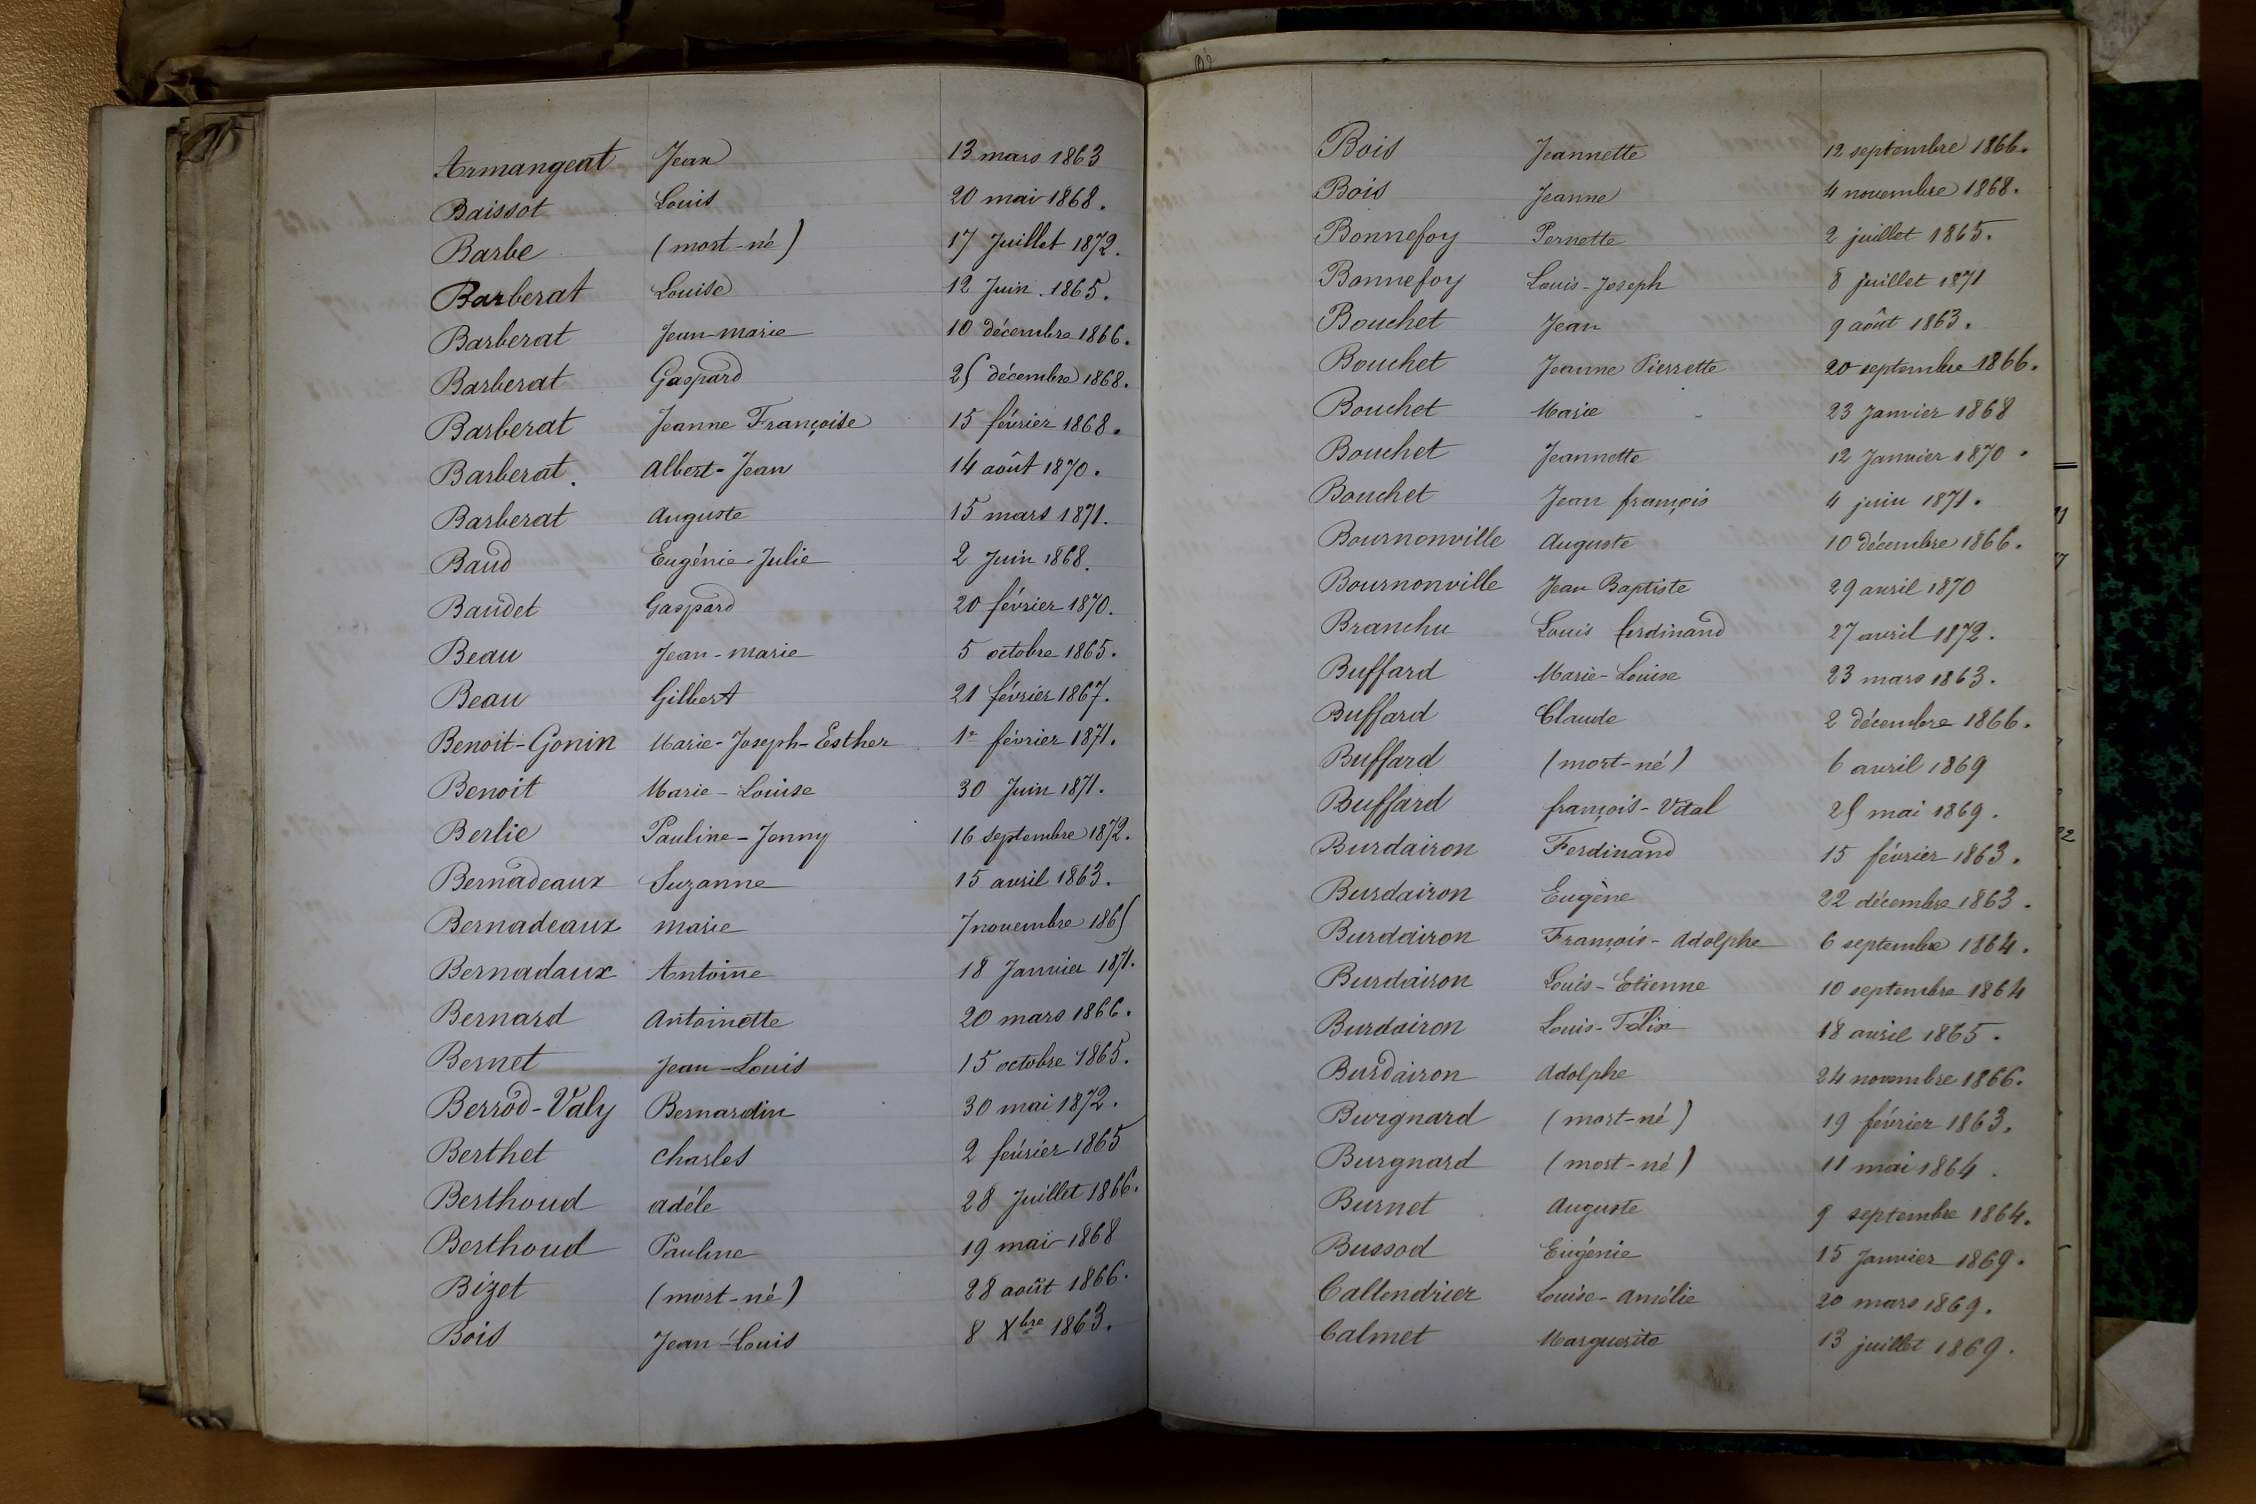 Armangeat Jean 13 mars 1863
Baissot Louis 20 mai 1868.
Barbe (mort-né) 17 Juillet 1872.
Barberat Louise 12 Juin. 1865.
Barberat Jean-marie 10 décembre 1866.
Barberat Gaspard 25 décembre 1868.
Barberat Jeanne Françoise 15 février 1868.
Barberat. Albert-Jean 14 août 1870.
Barberat Auguste 15 mars 1871.
Baud Eugénie-Julie 2 Juin 1868.
Baudet Gaspard 20 février 1870.
Beau Jean-marie 5 octobre 1865.
Beau Gilbert 21 février 1867.
Benoit-Gonin Marie-Joseph-Esther 1er février 1871.
Benoit Marie-Louise 30 Juin 1871.
Berlie Pauline-Jonny 16 septembre 1872.
Bernadeaux Suzanne 15 avril 1863.
Bernadeaux marie 7 novembre 1865
Bernadaux Antoine 18 Janvier 1871.
Bernard Antoinette 20 mars 1866.
Bernet Jean-Louis 15 octobre 1865.
Berrod-Valy Bernardin 30 mai 1872.
Berthet Charles 2 février 1865
Berthoud Adéle 28 Juillet 1866.
Berthoud Pauline 19 mai 1868
Bizet (mort-né) 28 août 1866.
Bois Jean-Louis 8 Xbre 1863.
Bois Jeannette 12 septembre 1866.
Bois Jeanne 4 novembre 1868.
Bonnefoy Pernette 2 juillet 1865.
Bonnefoy Louis-Joseph 8 juillet 1871
Bouchet Jean 9 août 1863.
Bouchet Jeanne Pierrette 20 septembre 1866.
Bouchet Marie 23 Janvier 1868
Bouchet Jeannette 12 Janvier 1870.
Bouchet Jean françois 4 juin 1871.
Bournonville Auguste 10 décembre 1866.
Bournonville Jean Baptiste 29 avril 1870
Branchu Louis ferdinand 27 avril 1872.
Buffard Marie-Louise 23 mars 1863.
Buffard Claude 2 décembre 1866.
Buffard (mort-né) 6 avril 1869
Buffard françois-Vital 25 mai 1869.
Burdairon Ferdinand 15 février 1863.
Burdairon Eugène 22 décembre 1863.
Burdairon François-Adolphe 6 septembre 1864.
Burdairon Louis-Etienne 10 septembre 1864
Burdairon Louis-Félix 18 avril 1865.
Burdairon Adolphe 24 novembre 1866.
Burgnard (mort-né) 19 février 1863.
Burgnard (mort-né) 11 mai 1864.
Burnet Auguste 9 septembre 1864.
Bussod Eugénie 15 Janvier 1869.
Callendrier Louise-Amélie 20 mars 1869.
Calmet Marguerite 13 juillet 1869.